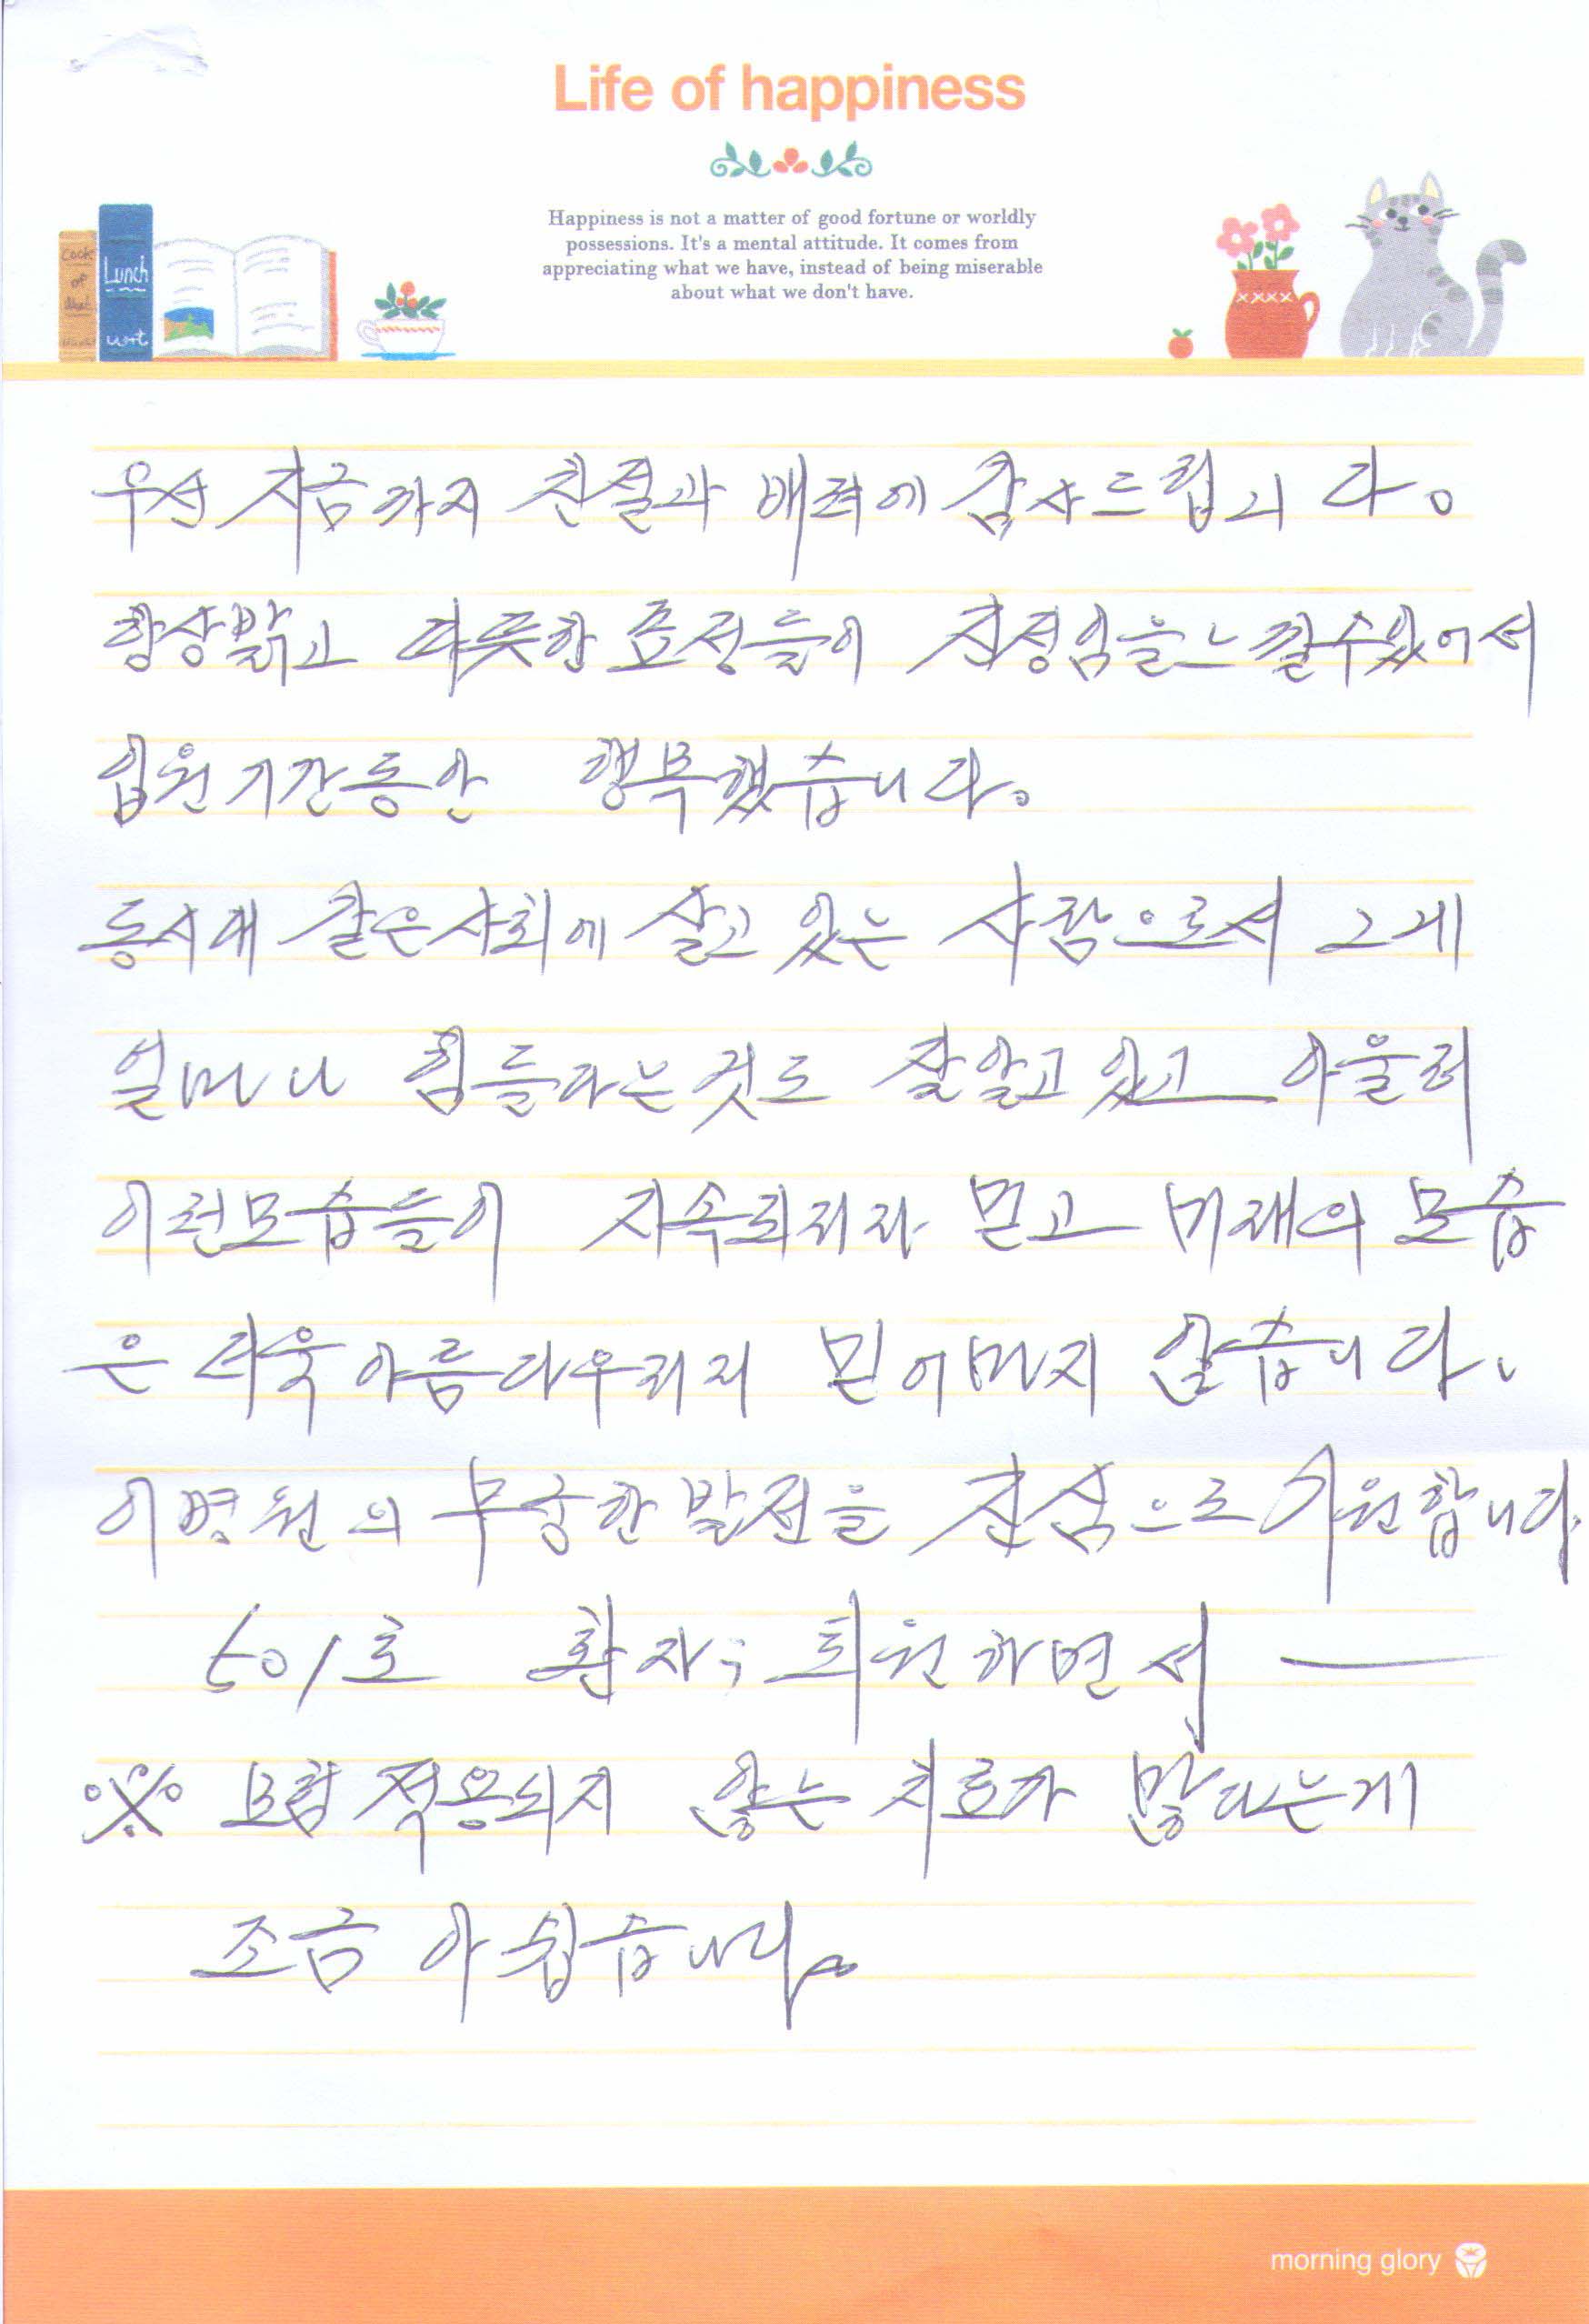 Life of happiness
Happiness is not a matter of good fortune or worldly
possessions. It's a mental attitude. It comes from
appreciating what we have, instead of being miserable
about what we don't have.
Cook
of
Lunch
우선 지금까지 친절과 배려에 감사드립니다.
항상밝고 따뜻한 표정들이 진정임을느낄수있어서
입원기간동안 행복했습니다.
동시대 같은사회에 살고 있는 사람으로서 그게
얼마나 힘들다는것도 잘알고있고 아울러
이런모습들이 지속되리라 믿고 미래의 모습
은 더욱아름다우리라 믿어마지 않습니다.
이병원의 무궁한발전을 진심으로 기원합니다.
501호 환자; 퇴원하면서 —
※ 보험적용되지 않는 치료가 많다는게
조금 아쉽습니다.
morning glory